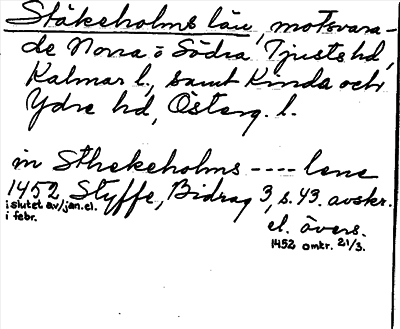 Stäkeholms län, motsvara-
de Norra o Södra Tjusts hd,
Kalmar l., samt Kinda och
Ydre hd, Österg. l.
in Sthekeholms ---- lene
1452 Styffe, Bidrag 3, s. 43. avskr.
i slutet av/jan. el. el. övers.
i febr. 1452 omkr. 21/3.